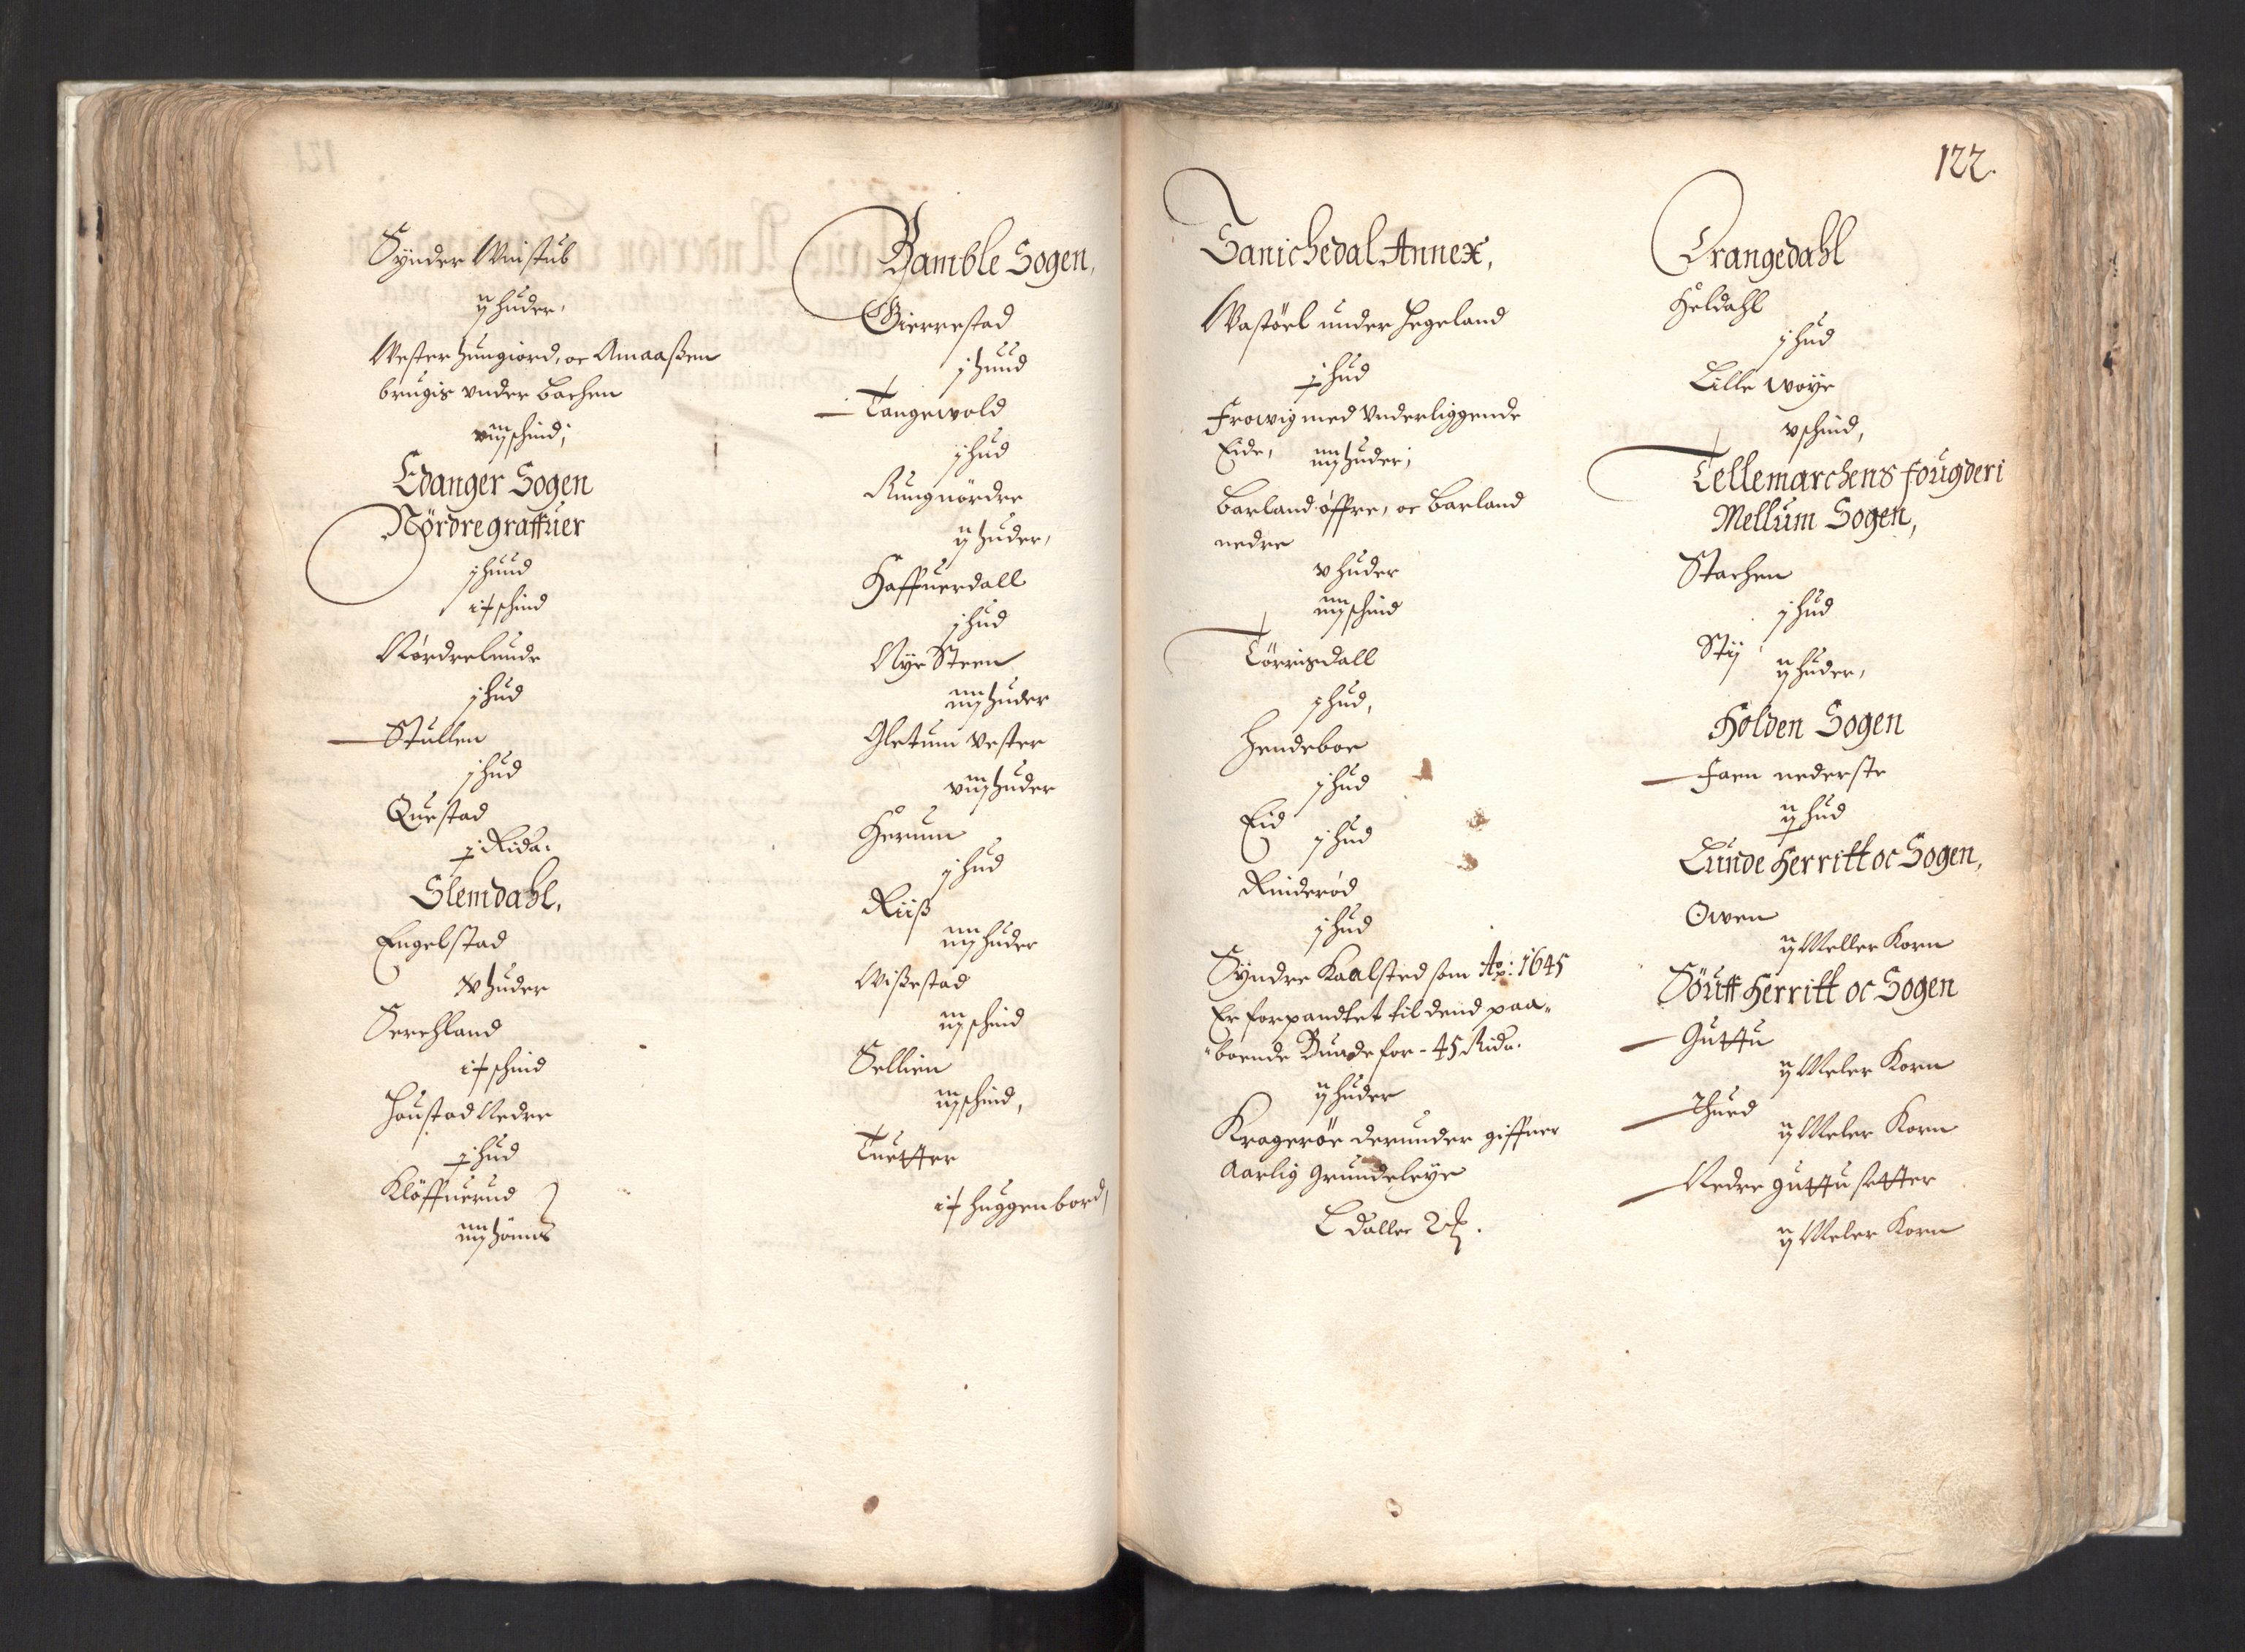 Synder Wnistub
ij huder,
Wester Hungiord, oc Amaaßen
brugis vnder Bachen
viij schind;
Edanger Sogen
Nørdregraffuer
j huud
ix schind
Nordrelunde
j hud
Stullen
j hud
Questad
j Rixdr.
Slemdahl,
Engelstad
xv huder
Serchland
ix schind
Houstad Nedre
j hud
Klöffuerud
iiij
Bamble Sogen,
Gierrestad
j huud
Tangewold
j hud
Rungnördre
ij huder,
Haffuerdall
j hud
Nÿe Steen
iiij huder
Gletum vester
viij huder
Herum
j hud
Riiß
iiij huder
Wißestad
iij schind
Sellien
iij schind,
Tuetter
ix huggenbord,
122.
Sanichedal Annex,
Wastöel under Hegeland
j hud
Frowig med Vnderliggende
Eide, iiij huder;
Barland öffre, oc Barland
nedre
v huder
iiij schind
Törrisdall
j hud,
Hendeboe
j hud
Eid
j hud
Rinderød
j hud
Syndre Kaalsted som Ao: 1645
Er forpandtet til dend paa-
boende Bunde for - 45 Rixdr.
ij huder
Kragerøe derunder giffuer
Aarlig Grundeleÿe
L daller
Drangedahl
Heldahl
j hud
Lille Woÿe
v schind,
Tellemarchens fougderi
Mellum Sogen,
Stachen
j hud
Stij
ij huder,
Holden Sogen
Faen nederste
ij hud
Lunde Herritt oc Sogen,
Owen
ij Meller Korn
Söuff Herritt oc Sogen
Guttu
ij Meler Korn
Thued
ij Meler Korn
Nedre Guttu setter
ij Meler Korn